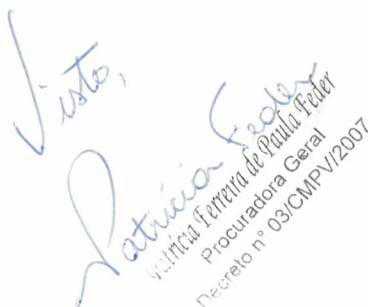 Visto,
Patrícia Feder
Patrícia Ferreira de Paula Feder
Procuradora Geral
Decreto nº 03/CMPV/2007